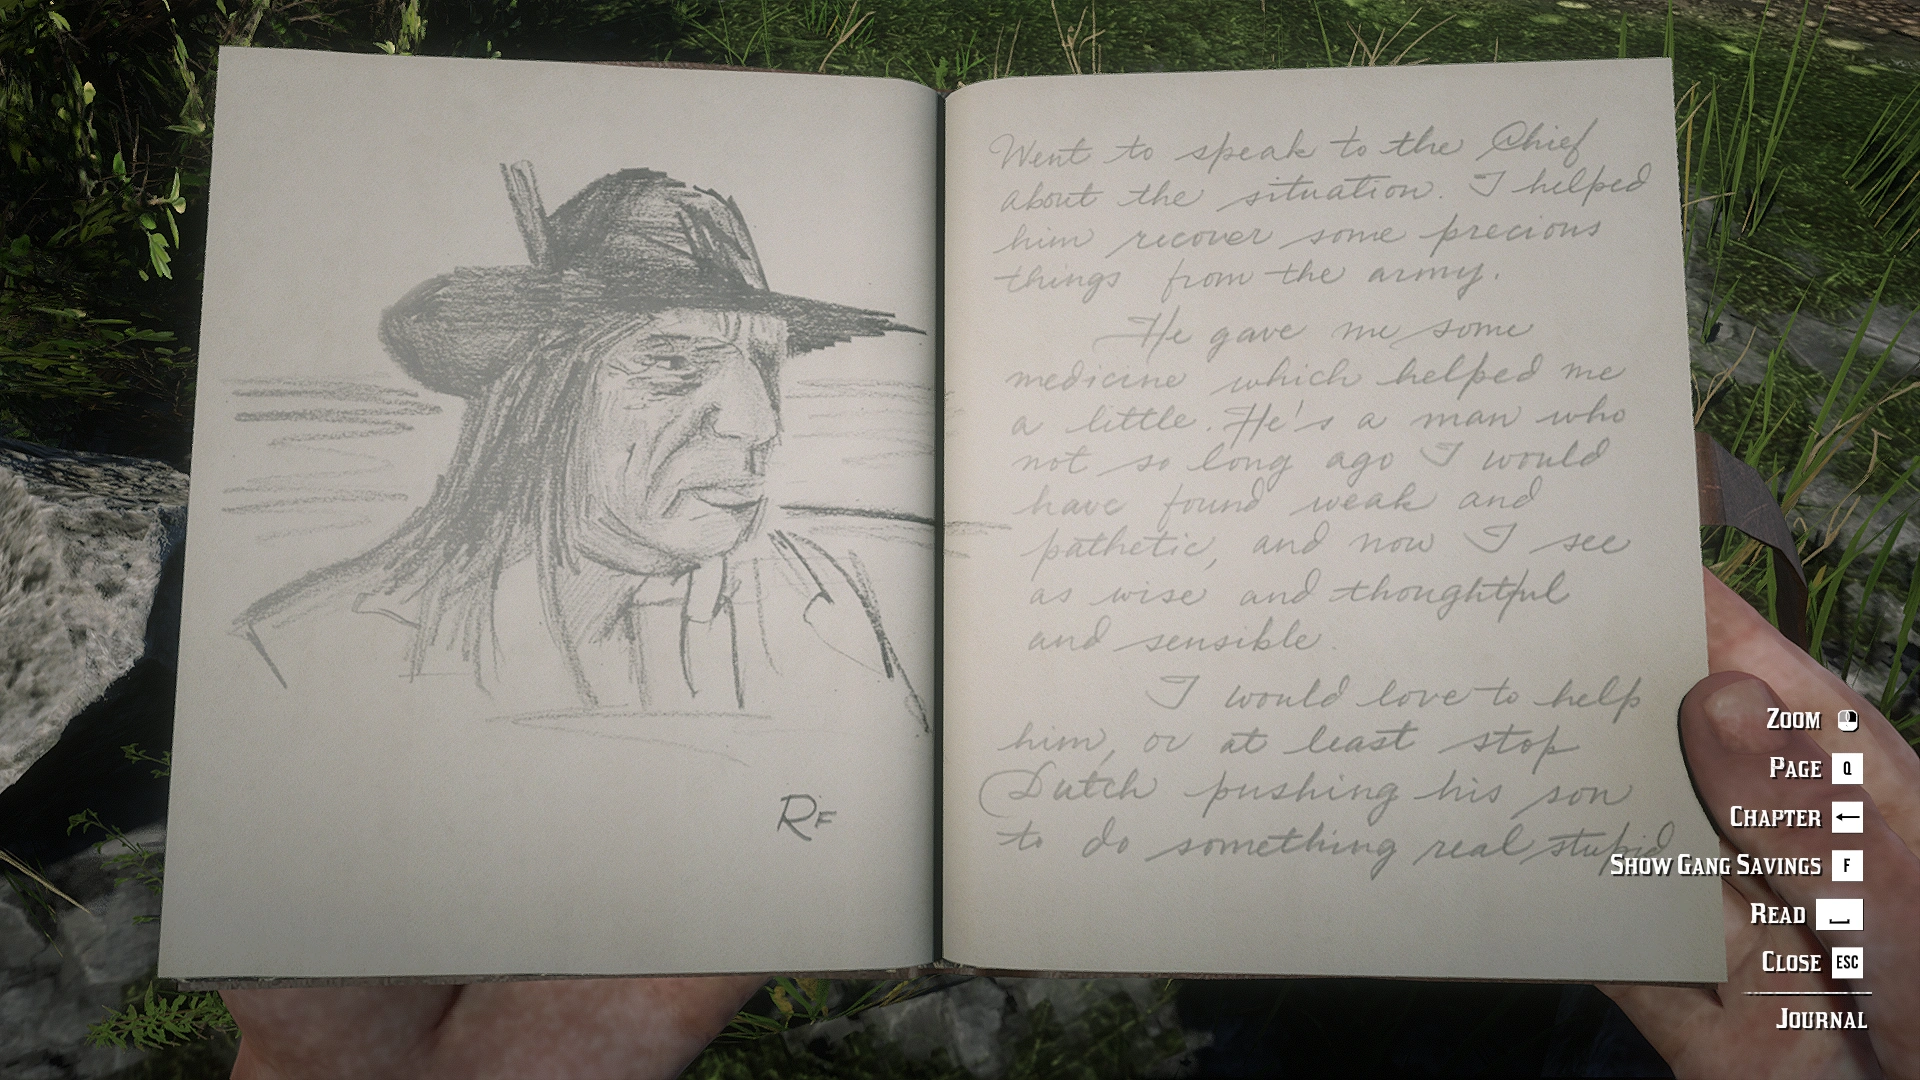 RF
Went to speak to the Chief
about the situation. I helped
him recover some precious
things from the army.
He gave me some
medicine which helped me
a little. He's a man who
not so long ago I would
have found weak and
pathetic, and now I see
as wise and thoughtful
and sensible.
I would love to help
him, or at least stop
Dutch pushing his son
to do something real stupid
ZOOM
PAGE Q
CHAPTER ←
SHOW GANG SAVINGS F
READ
CLOSE ESC
JOURNAL